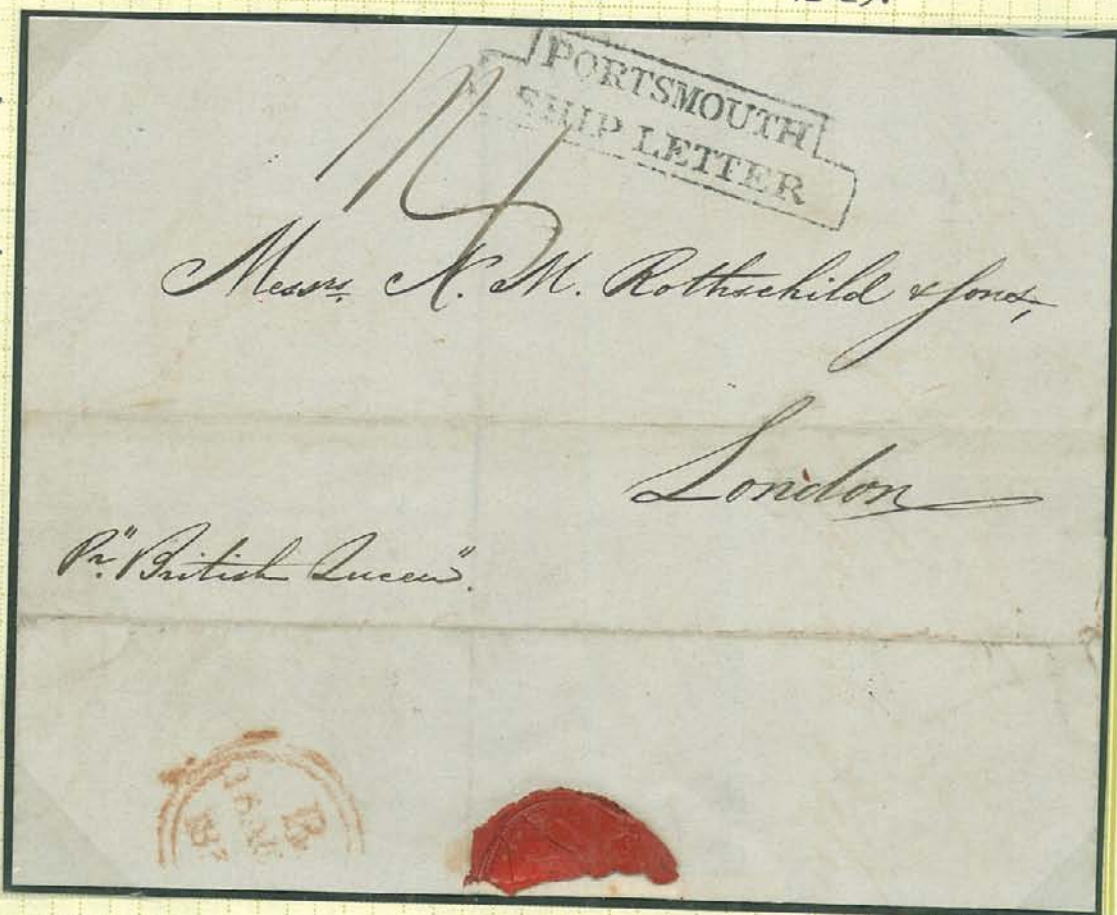 PORTSMOUTH
SHIP LETTER
Messrs. N. M. Rothschild & Sons,
London
Pr. "British Queen".
B